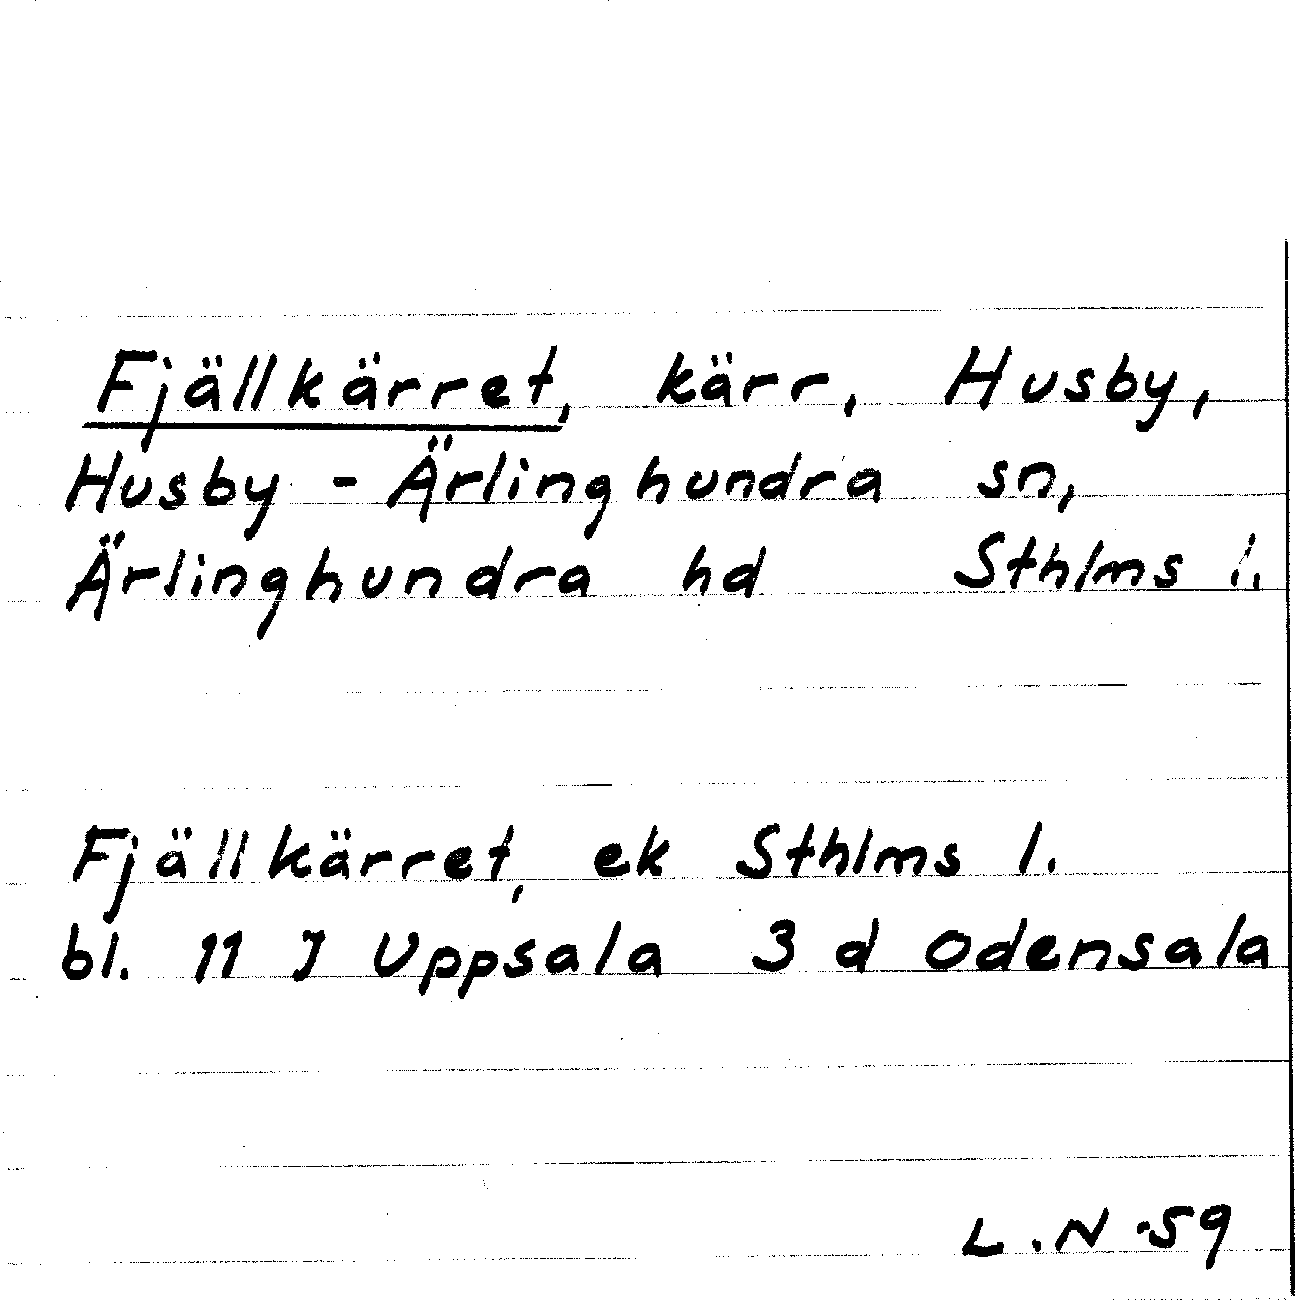 Fjällkärret, kärr, Husby,
Husby - Ärlinghundra sn,
Ärlinghundra hd Sthlms l.
Fjällkärret, ek Sthlms l.
bl. 11 J Uppsala 3 d Odensala
L.N -59